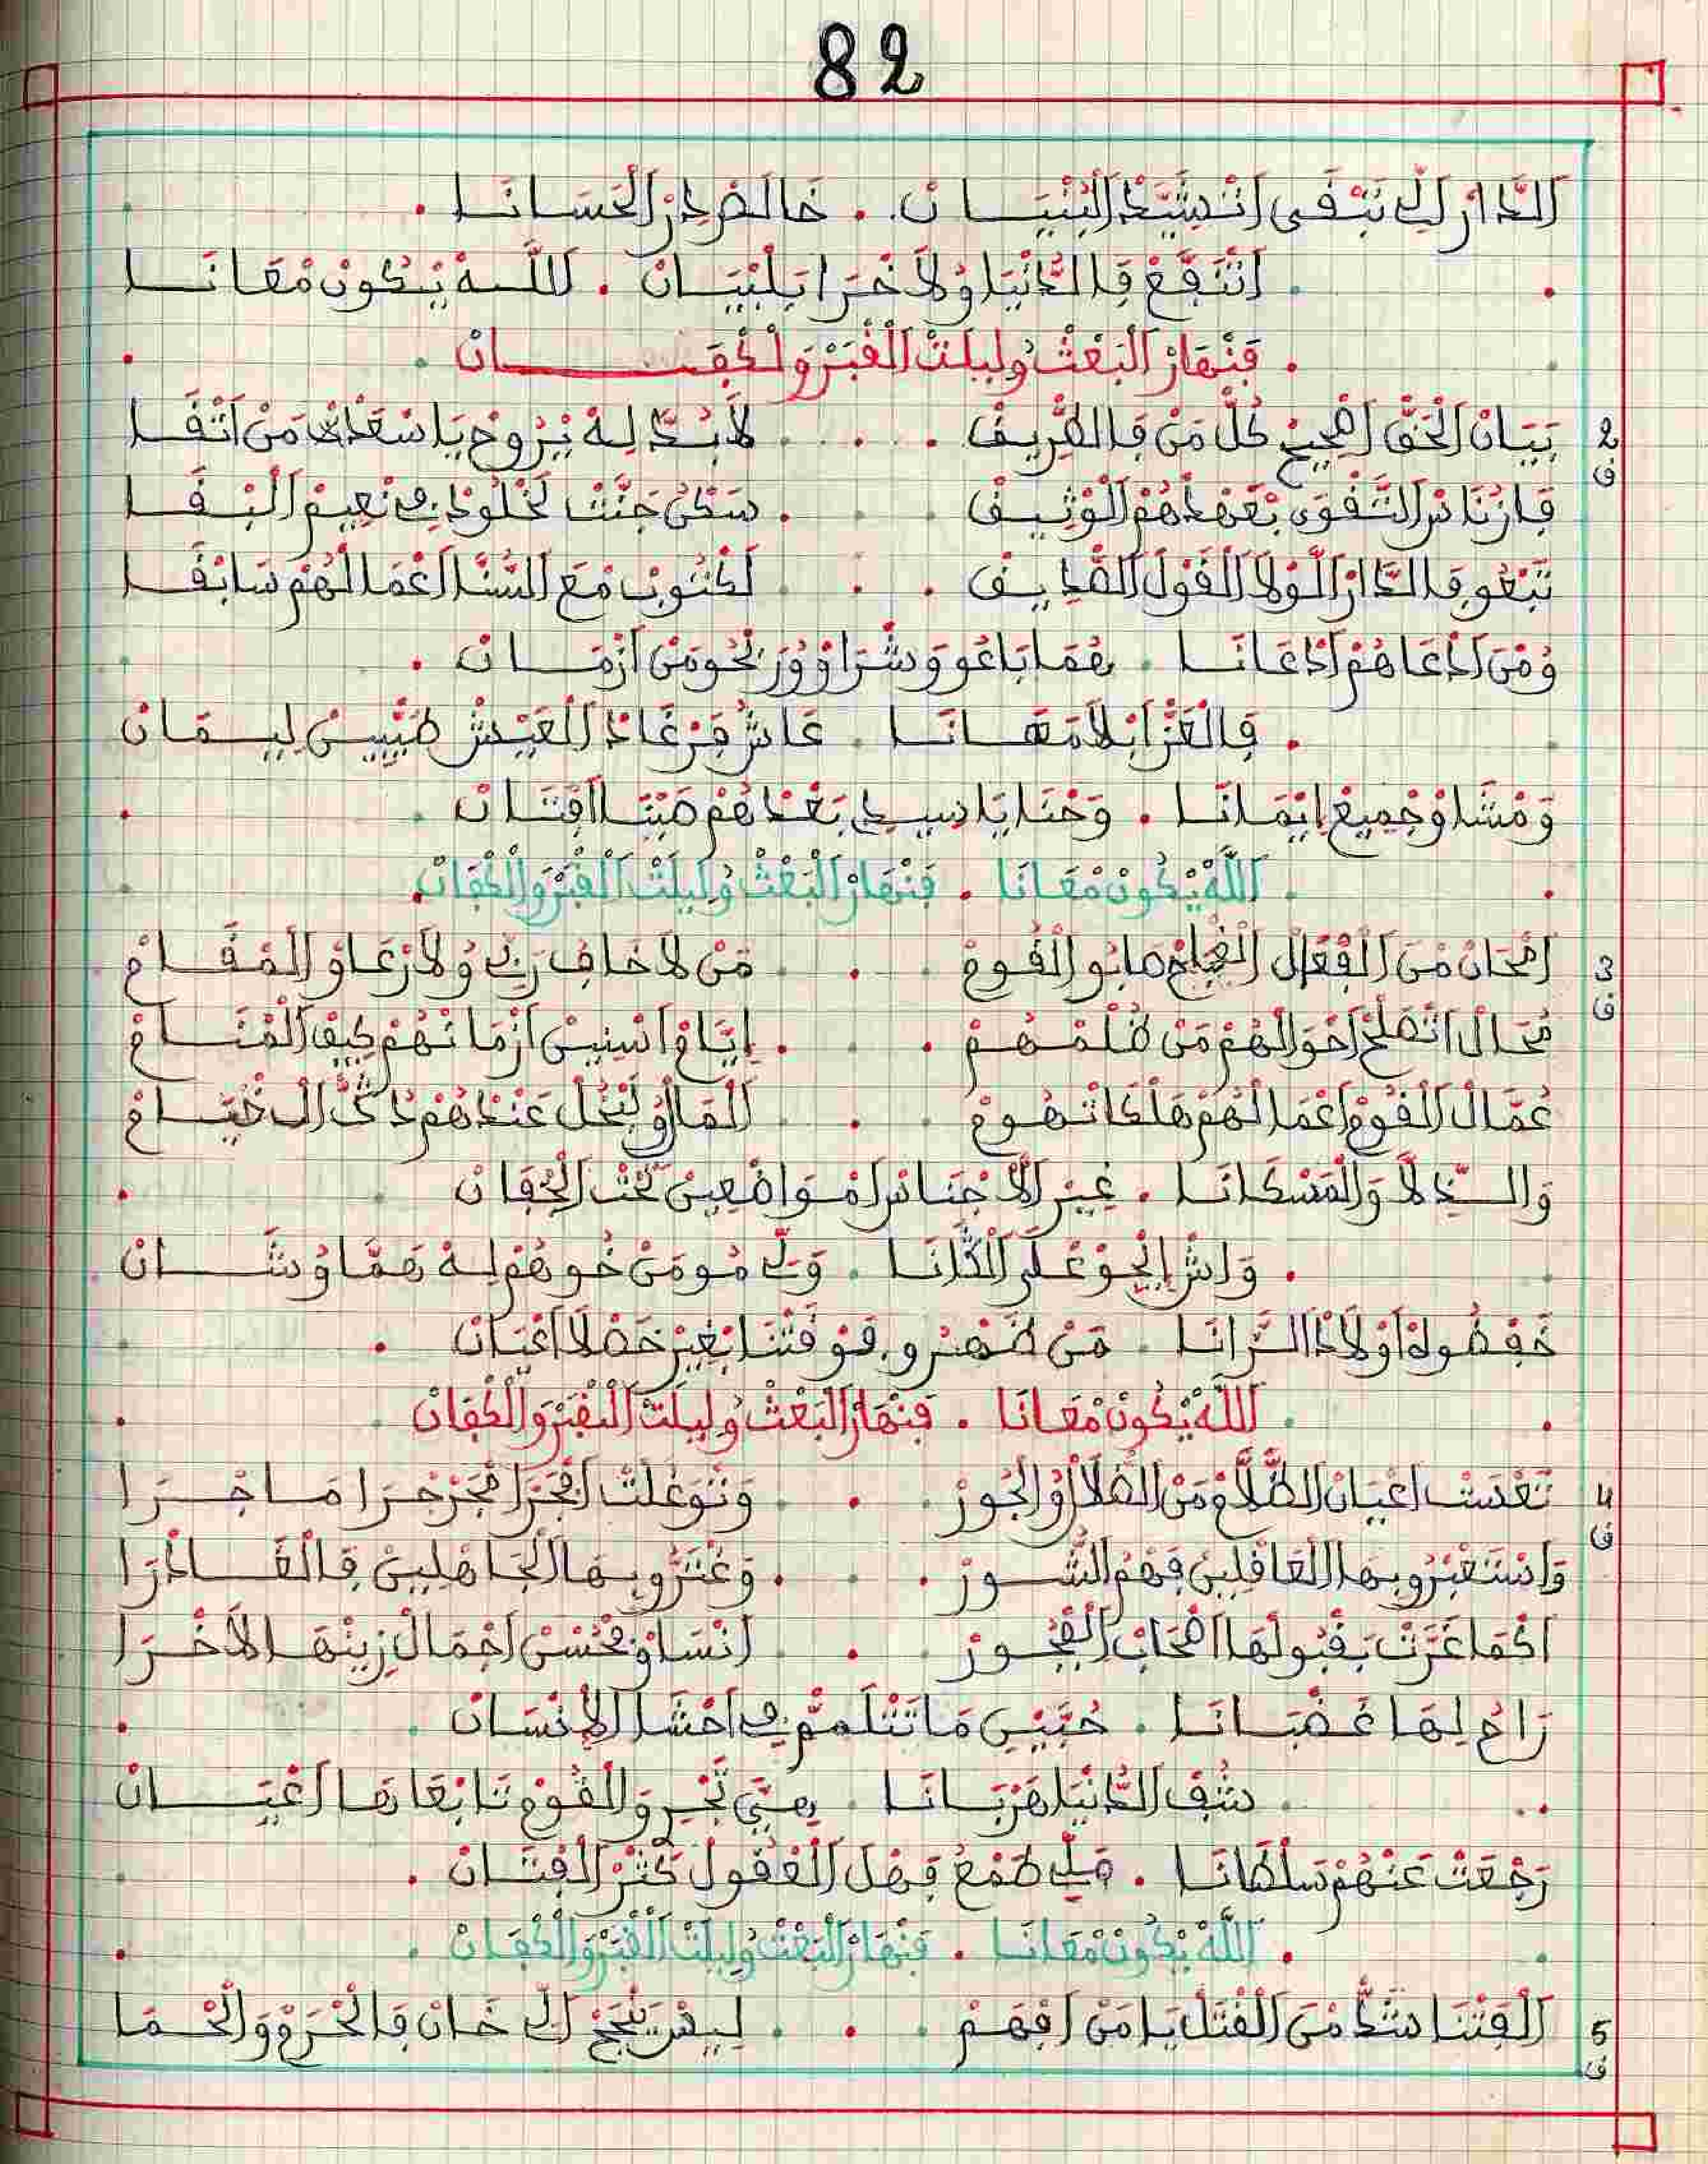 82
الدَّارْ لِّي تَبْقَى انْشَيَّدْ البُنْيَانْ . خَالَصْ دَارْ الحَسَانَا .
. انْتَفَعْ فَالدُّنْيَا وُلاَخْرَا بَلْبْيَانْ . اللَّهْ يْكُونْ مْعَانَا
. فَنْهَارْ الْبَعْثْ وْلِيلَتْ الْقْبَرْ وَلَكْفَانْ
2 ف بَيَانْ الْحَقّ اصْحِيحْ كُلّ مَنْ فَالطْرِيقْ . . . لاَبُدَّ لِهْ يْرُوحْ يَا سَعْدَاتْ مَنْ اتْقَا
فَازْ نَاسْ التَّقْوَى بْعَهْدْهُمْ الْوْثِيقْ . سَكْنُ جَنَّتْ لَخْلُودْ فِي نْعِيمْ الْبْقَا
تَبْعُو فَالدَّارْ الُّولاَ الْقَوْلْ الصْدِيقْ . . لَكْتُوبْ مَعَ السُّنَّا اعْمَالْهُمْ سَابْقَا
وُمْنْ ادْعَاهُمْ ادْعَانَا . هُمَا بَاعُو وَشْرَاوْ وُرَبْحُو مَنْ ازْمَانْ .
. فَالْعَزّ ابْلاَ مَهَانَا . عَاشُ فَرْغَادْ الْعَيْشْ طَيّْبِينْ لِيمَانْ
وَمْشَاوْ جْمِيعْ ايْمَانَا . وَحْنَا يَا سِيدِي بَعْدْهُمْ صَبْنَا افْتَانْ
. اللَّهْ يْكُونْ مْعَانَا . فَنْهَارْ الْبَعْثْ وْلِيلَتْ الْقْبَرْ وَالْكْفَانْ.
3 ف امْحَانْ مْنَ الْفْعَالْ الْقْبَاحْ صَابُو الْقُومْ . مَنْ لاَ خَافْ رَبِّي وُلاَ رْعَاوْ الْمْقَامْ
مُحَالْ اتْصْلَحْ احْوَالْهُمْ مَنْ ظُلْمْهُمْ . . إِيَّامْ اسْنِينْ ازْمَانْهُمْ كِيفْ الْمْنَامْ
عُمَّالْ الْقُومْ اعْمَالْهُمْ هَلْكَاتْهُومْ . الْمَالْ وُلَبْخَلْ عَنْدْهُمْ دَكّ الْخْيَامْ
وَالدِّلاَّ وَالْمَسْكَانَا . غِيرْ الاَجْنَاسْ امْوَاضْعِينْ تَحْتْ الْجْفَانْ
. وَاشْ إِيْجُو عْلَى الْكَّانَا . وَلِّي مُومَنْ خُوهُمْ لِهْ هَمَّا وُشَانْ
حَفْظُوهْ اوْلاَدْ الزَّانَا . مَنْ ظَهْرُو. فَوْقَتْنَا بْغِيرْ خَصْلاَ اعْيَانْ
. اللَّهْ يْكُونْ مْعَانَا . فَنْهَارْ الْبَعْثْ وْلِيلَتْ الْقْبَرْ وَالْكْفَانْ
4 ف تَعْسَتْ اعْيَانْ الظُّلاَّمْ مَنْ الضّْلاَلْ وُالْجُورْ . وَتْوَغْلَتْ مَا جْرَا
وَاسْتَغْبْرُو بِهَا الْغَافْلِينْ فَهْمْ الشُّورْ . . وَغْتَرُّو بِهَا الْجَاهْلِينْ فَالْغَادْرَا
اكْمَا غَرَّتْ بَقْبُولْهَا اصْحَابْ الْفْجُورْ . انْسَاوْ بْحُسْنْ اجْمَالْ زِينْهَا الاَخْرَا
رَاحُ لِهَا غَضْبَانَا . حُبّْيِنْ مَا تَتْلَمُّ فِي احْشَا الإِنْسَانْ
. شُفْ الدُّنْيَا هَرْبَانَا . هِيَّ تَجْرِي وَالْقُومْ تَابْعَاهَا اعْيَانْ
رَجْعَتْ عَنْهُمْ سَلْطَانَا . مَلِّي طْمَعْ فَهْلْ الْعْقُولْ كَثْرْ الْفْتَانْ .
. اللَّهْ يْكُونْ مْعَانَا . فَنْهَارْ الْبَعْثْ وْلِيلَتْ الْقْبَرْ وَالْكْفَانْ
5 ف الْفِتْنَا اشَدّْ مْنَ الْقْتَلْ يَا مَنْ افْهَمْ . لِيسْ يَنْجَحْ الِّي خَانْ فَالْحْرَمْ وَالْحْمَا